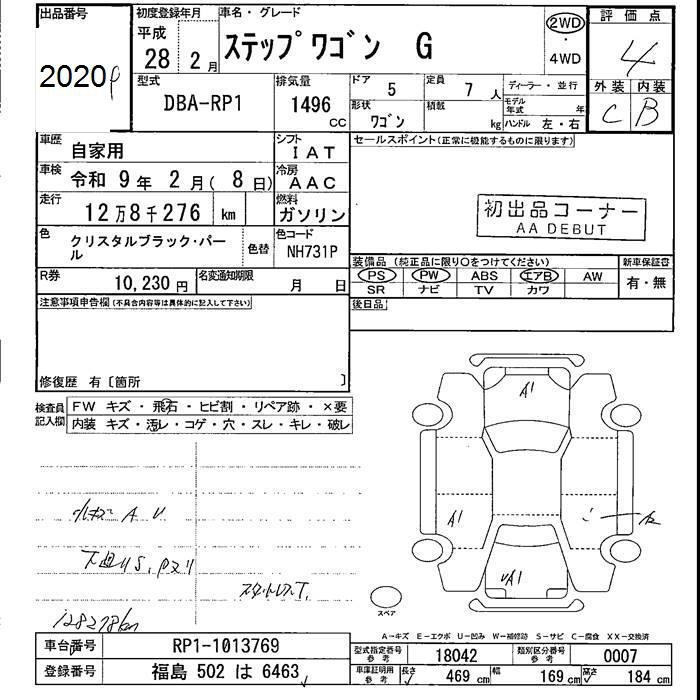 出品番号 初度登録年月 車名・グレード 評価点
2020 平成 28 2月 ステップワゴン G 2WD・4WD 4
型式 排気量 ドア 定員 ディーラー・並行 外装 内装
DBA-RP1 1496 CC 5 7人 モデル年式 年 C B
形状 積載
ワゴン kg ハンドル 左・右
車歴 自家用 シフト IAT セールスポイント(正常に機能するものに限ります)
車検 令和 9年 2月( 8日) 冷房 AAC
走行 12万8千276 km 燃料 ガソリン
初出品コーナー
AA DEBUT
色 クリスタルブラック・パール 色替 色コード NH731P
装備品 (純正品に限り○をつけてください) 新車保証書
R券 10,230円 名変通知期限 月 日 PS PW ABS エアB AW 有・無
SR ナビ TV カワ
注意事項申告欄(不具合内容等は具体的に記入して下さい) 後日品
修復歴 有〔箇所 〕
検査員記入欄 FW キズ・飛石・ヒビ割・リペア跡・×要
内装 キズ・汚レ・コゲ・穴・スレ・キレ・破レ
A1
A U
A1
下廻りS,
スタットレスT.
A1
スペア
128278km
A-キズ E-エクボ U-凹み W-補修跡 S-サビ C-腐食 XX-交換済
車台番号 RP1-1013769 型式指定番号 参考 18042 類別区分番号 参考 0007
登録番号 福島 502 は 6463 車庫証明用 参考 長さ 469 cm 幅 169 cm 高さ 184 cm